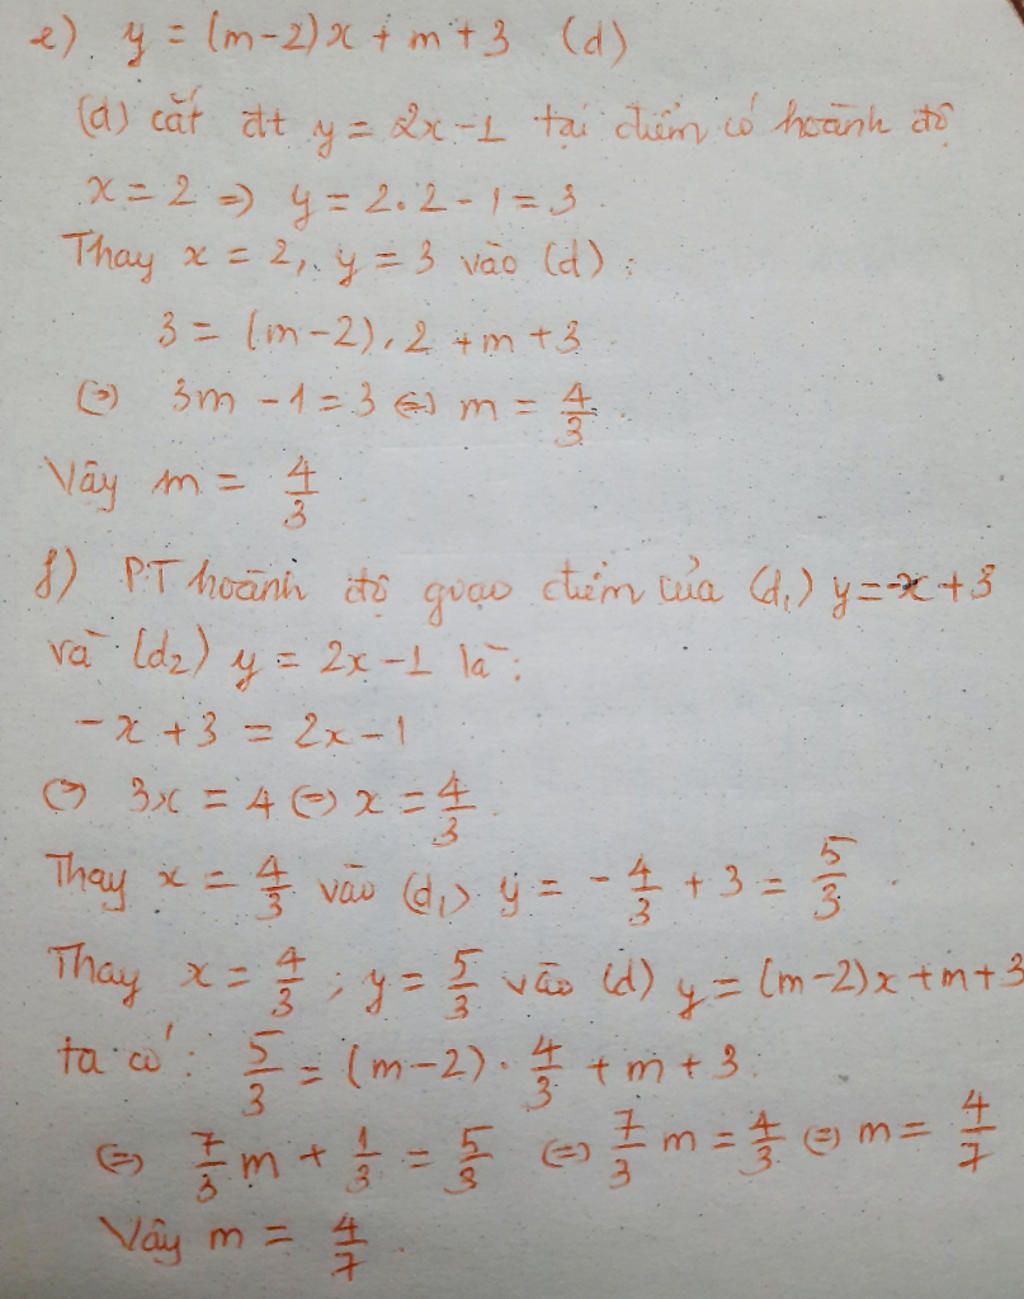 e) y = (m-2)x + m + 3 (d)
(d) cắt đt y = 2x - 1 tại điểm có hoành độ
x = 2 => y = 2.2 - 1 = 3.
Thay x = 2, y = 3 vào (d):
3 = (m-2).2 + m + 3
<=> 3m - 1 = 3 <=> m = 4/3.
Vậy m = 4/3
f) PT hoành độ giao điểm của (d₁) y = -x + 3
và (d₂) y = 2x - 1 là:
-x + 3 = 2x - 1
<=> 3x = 4 <=> x = 4/3.
Thay x = 4/3 vào (d₁) y = -4/3 + 3 = 5/3.
Thay x = 4/3; y = 5/3 vào (d) y = (m-2)x + m + 3
ta có: 5/3 = (m-2) . 4/3 + m + 3.
<=> 7/3 m + 1/3 = 5/3 <=> 7/3 m = 4/3 <=> m = 4/7
Vậy m = 4/7.